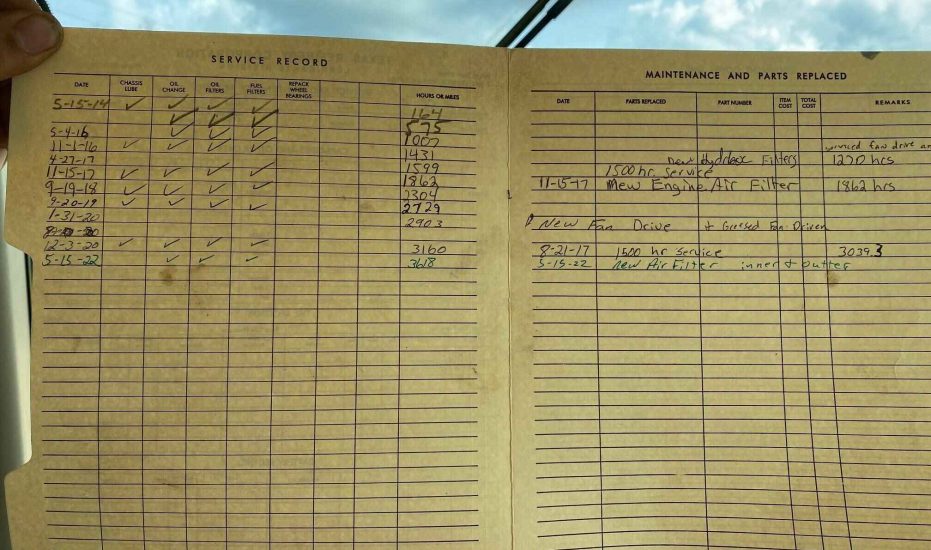 SERVICE RECORD
DATE CHASSIS LUBE OIL CHANGE OIL FILTERS FUEL FILTERS REPACK WHEEL BEARINGS HOURS OR MILES
5-15-14 ✓ ✓ ✓ ✓ 164
✓ ✓ ✓ 575
5-4-16 ✓ ✓ ✓ 1007
11-1-16 ✓ ✓ ✓ ✓ 1431
4-27-17 1599
11-15-17 ✓ ✓ ✓ ✓ 1862
9-19-18 ✓ ✓ ✓ ✓ 2304
9-20-19 ✓ ✓ ✓ ✓ 2729
1-31-20 2903
12-3-20 ✓ ✓ ✓ ✓ 3160
5-15-22 ✓ ✓ ✓ 3618
MAINTENANCE AND PARTS REPLACED
DATE PARTS REPLACED PART NUMBER ITEM COST TOTAL COST REMARKS
serviced fan drive
new Hydraulic Filters 1270 hrs
1500 hr service
11-15-17 New Engine Air Filter 1862 hrs
New Fan Drive + Greased Fan Driven
8-21-17 1500 hr service 3039.3
5-15-22 new Air Filter inner + outter